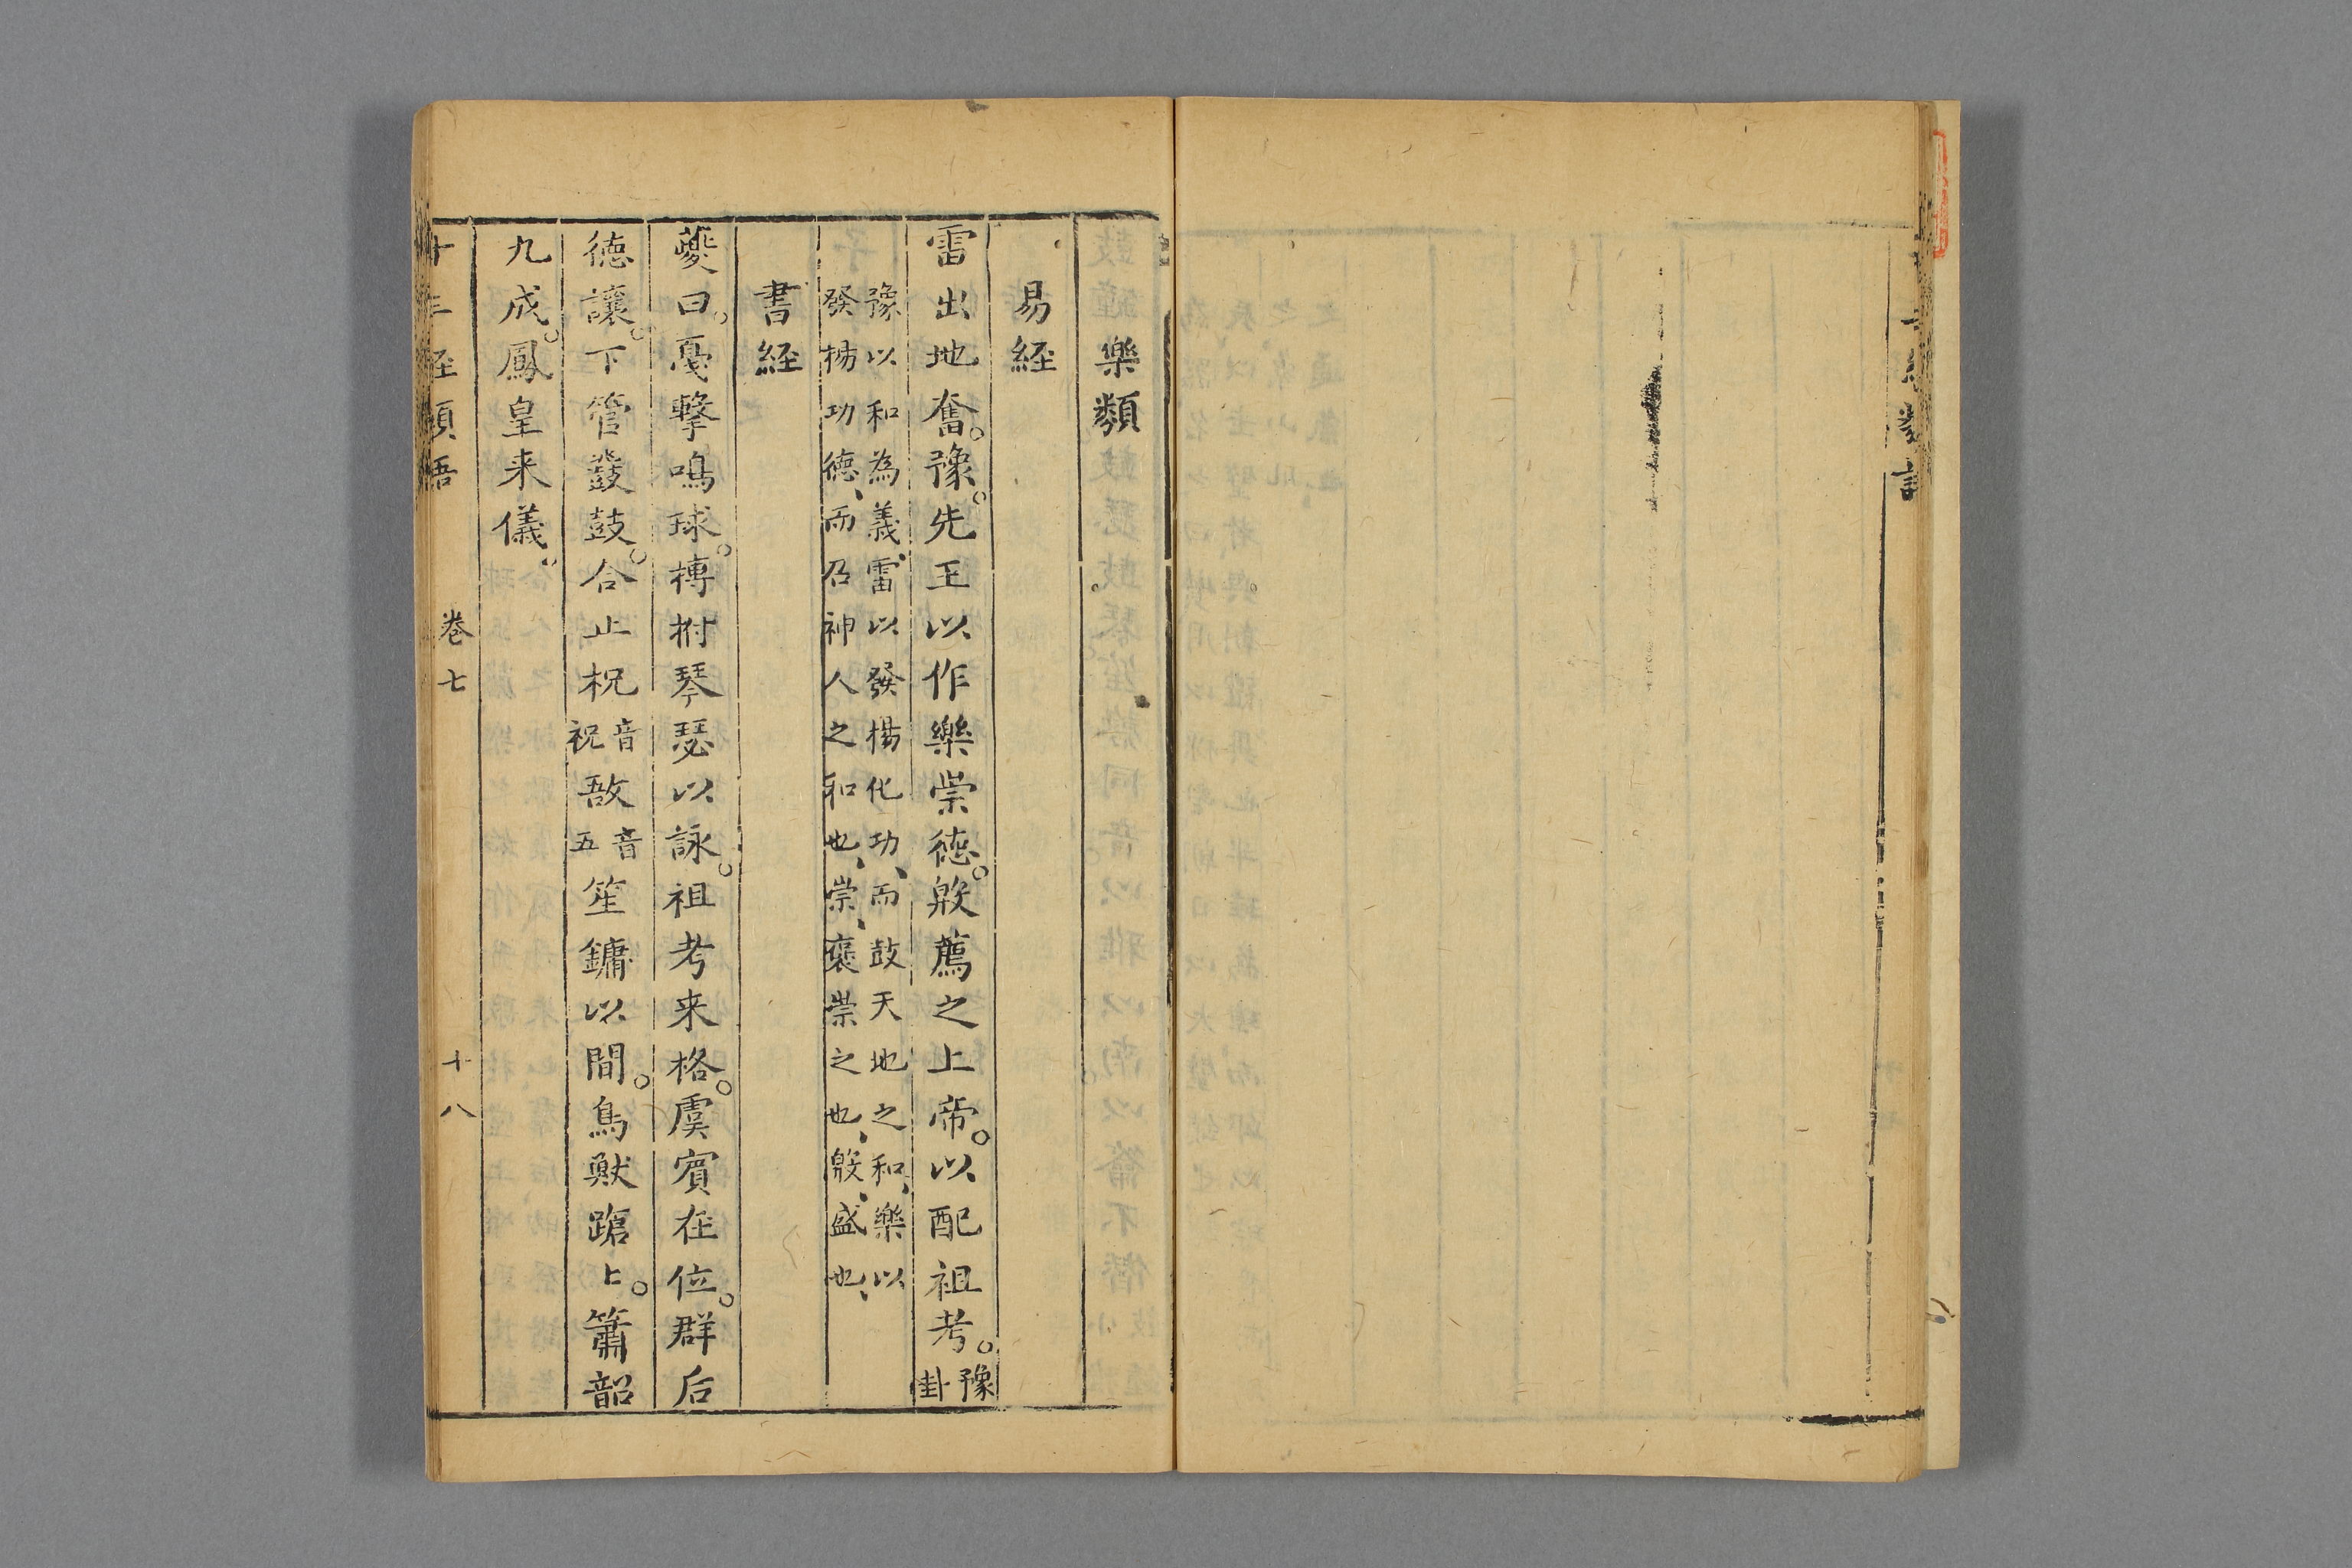 樂類
易経
雷出地奮。豫。先王以作樂崇徳。殷薦之上帝。以配祖考。豫卦
豫以和為義、雷以發楊化功、而鼓天地之和、樂以
發楊功徳、而召神人之和也、崇、褒崇之也、殷、盛也、
書経
夔曰。戞擊鳴球。搏拊琴瑟以詠。祖考来格。虞賓在位。群后
徳讓。下管鼗鼓。合止柷音祝敔音五笙鏞以間。鳥獸蹌〻。簫韶
九成。鳳皇来儀。
十三経類語 卷七 十八